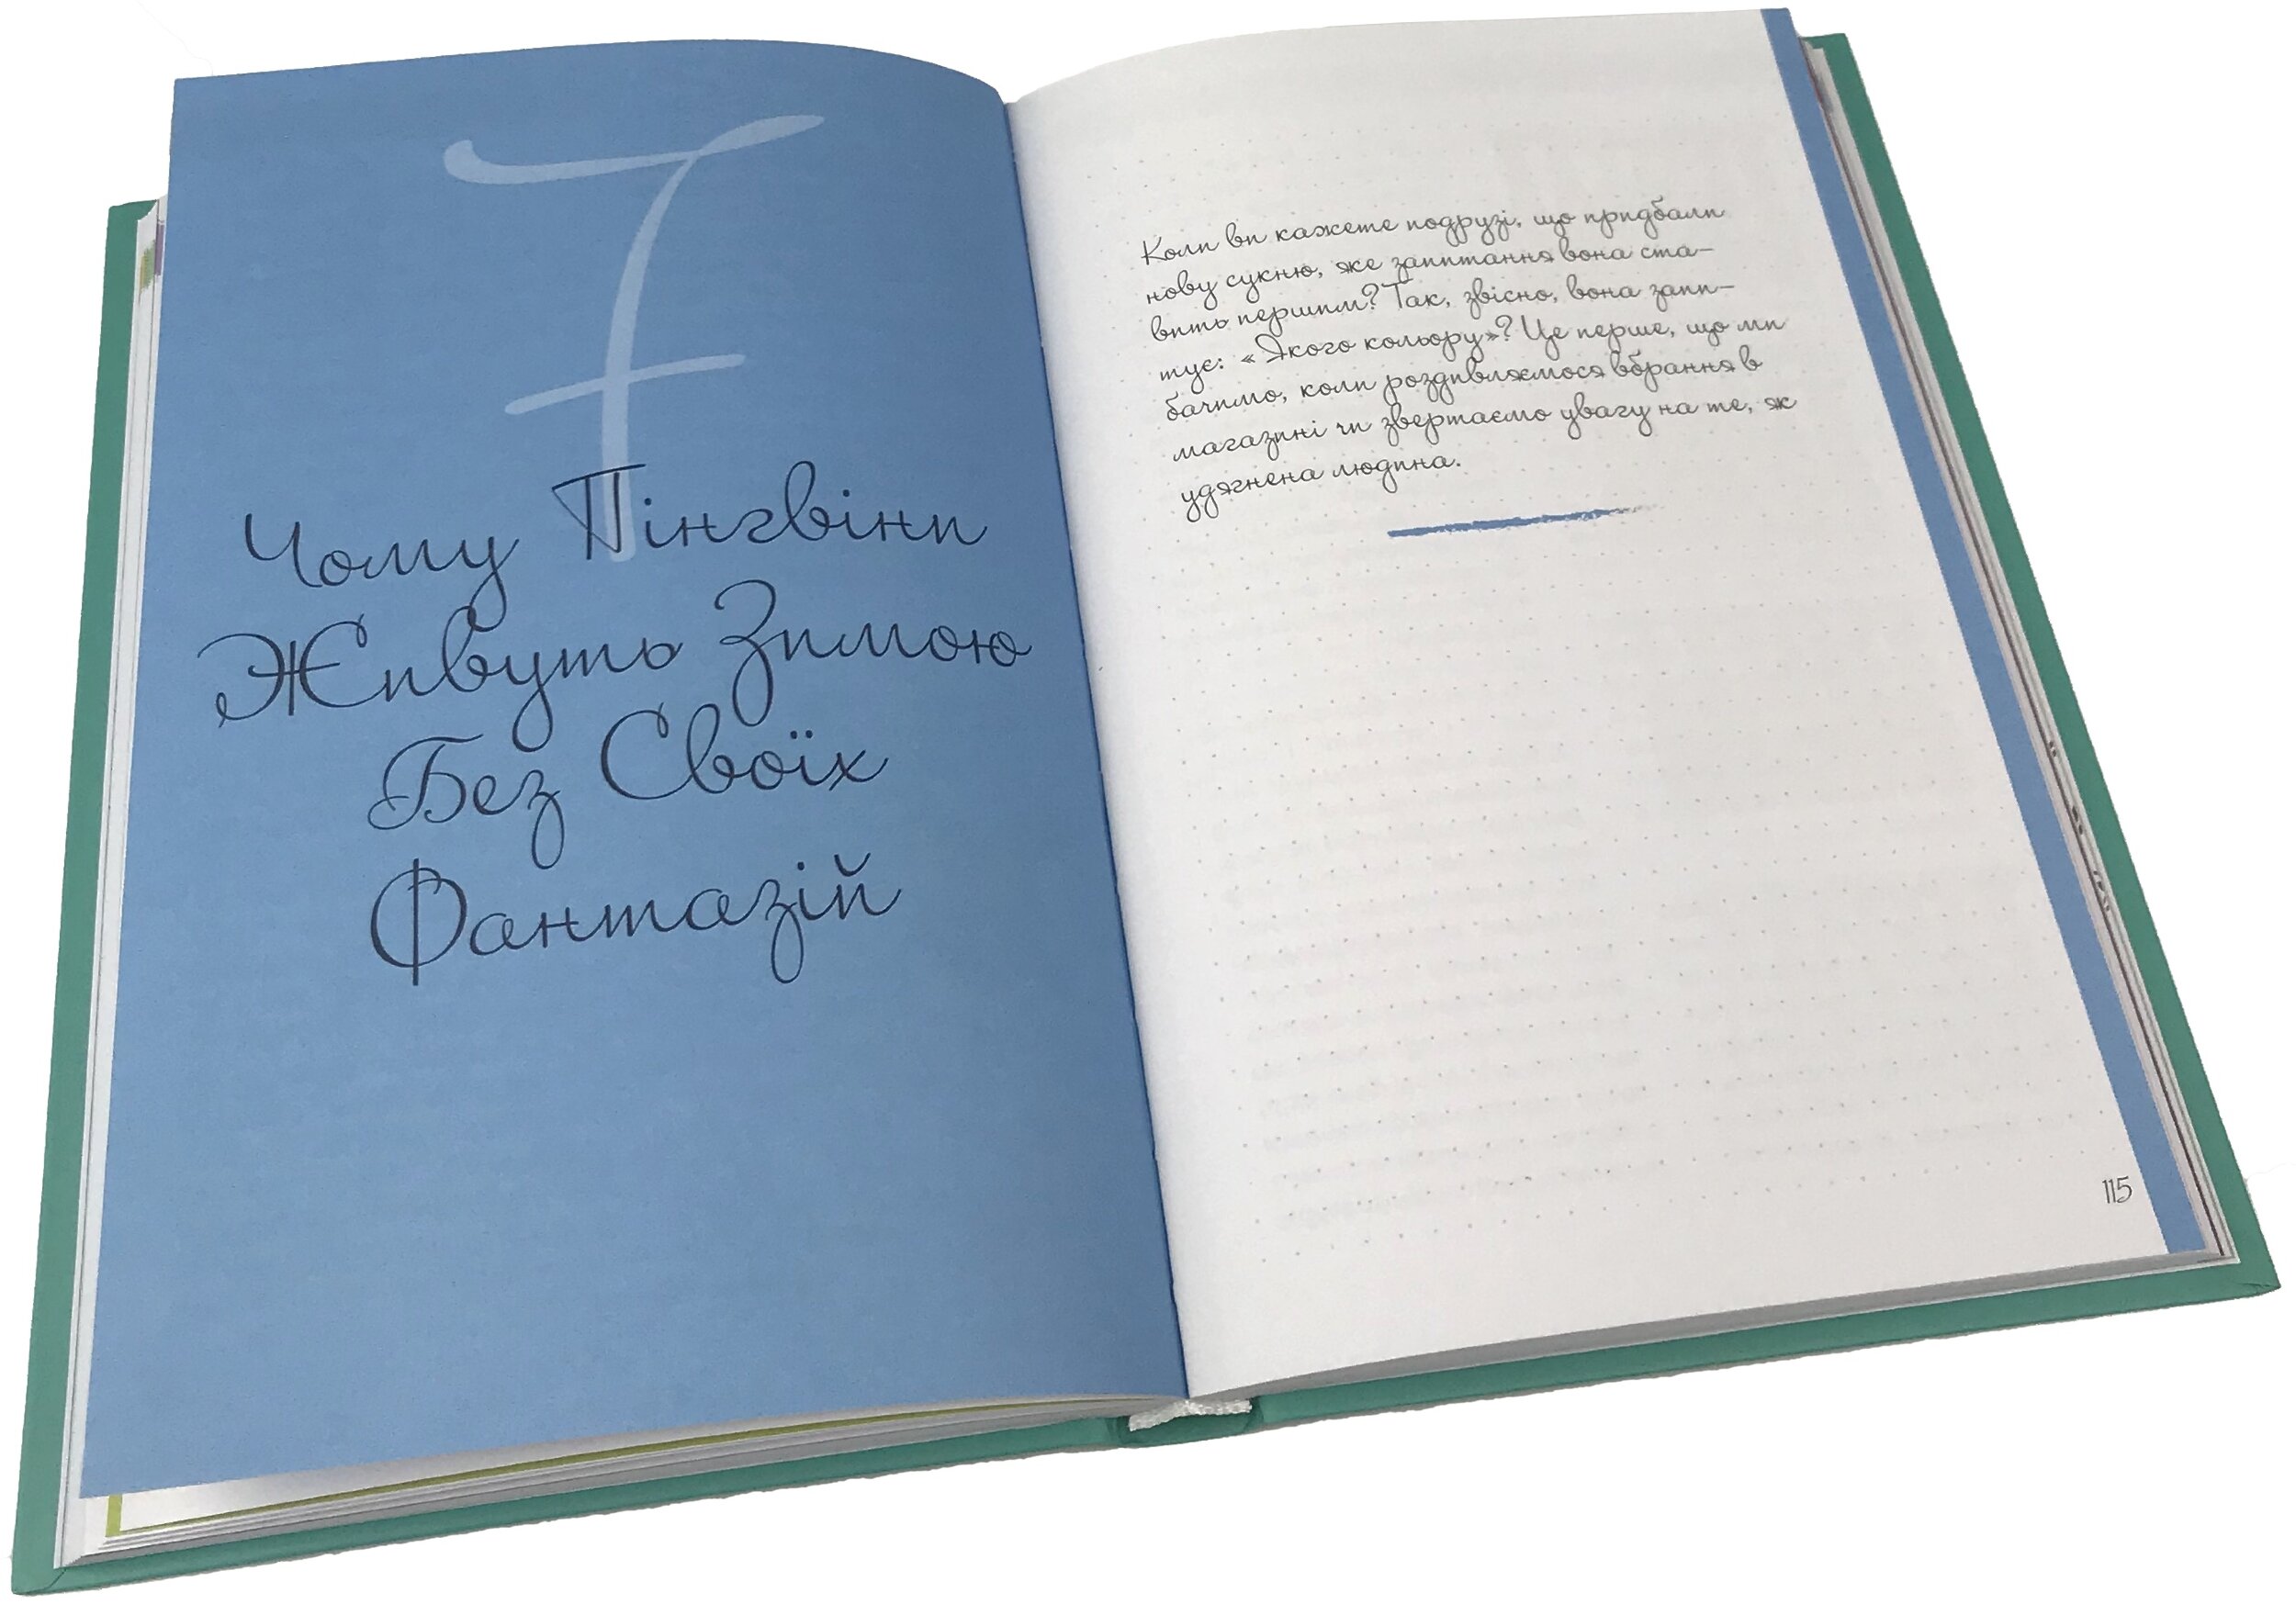 7
Чому Пінгвіни
Живуть Зимою
Без Своїх
Фантазій
Коли ви кажете подрузі, що придбали
нову сукню, яке запитання вона ста-
вить першим? Так, звісно, вона запи-
тує: «Якого кольору»? Це перше, що ми
бачимо, коли роздивляємося вбрання в
магазині чи звертаємо увагу на те, як
удягнена людина.
115